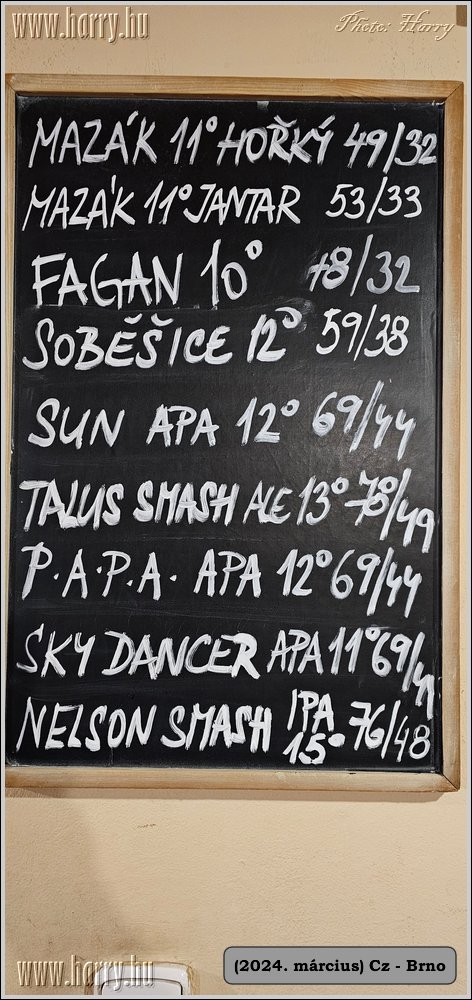 www.harry.hu
Photo: Harry
MAZÁK 11° HOŘKÝ 49/32
MAZÁK 11° JANTAR 53/33
FAGAN 10° 48/32
SOBĚŠICE 12° 59/38
SUN APA 12° 69/44
TALUS SMASH ALE 13° 78/49
P.A.P.A. APA 12° 69/44
SKY DANCER APA 11° 69/41
NELSON SMASH IPA 15° 76/48
www.harry.hu
(2024. március) Cz - Brno